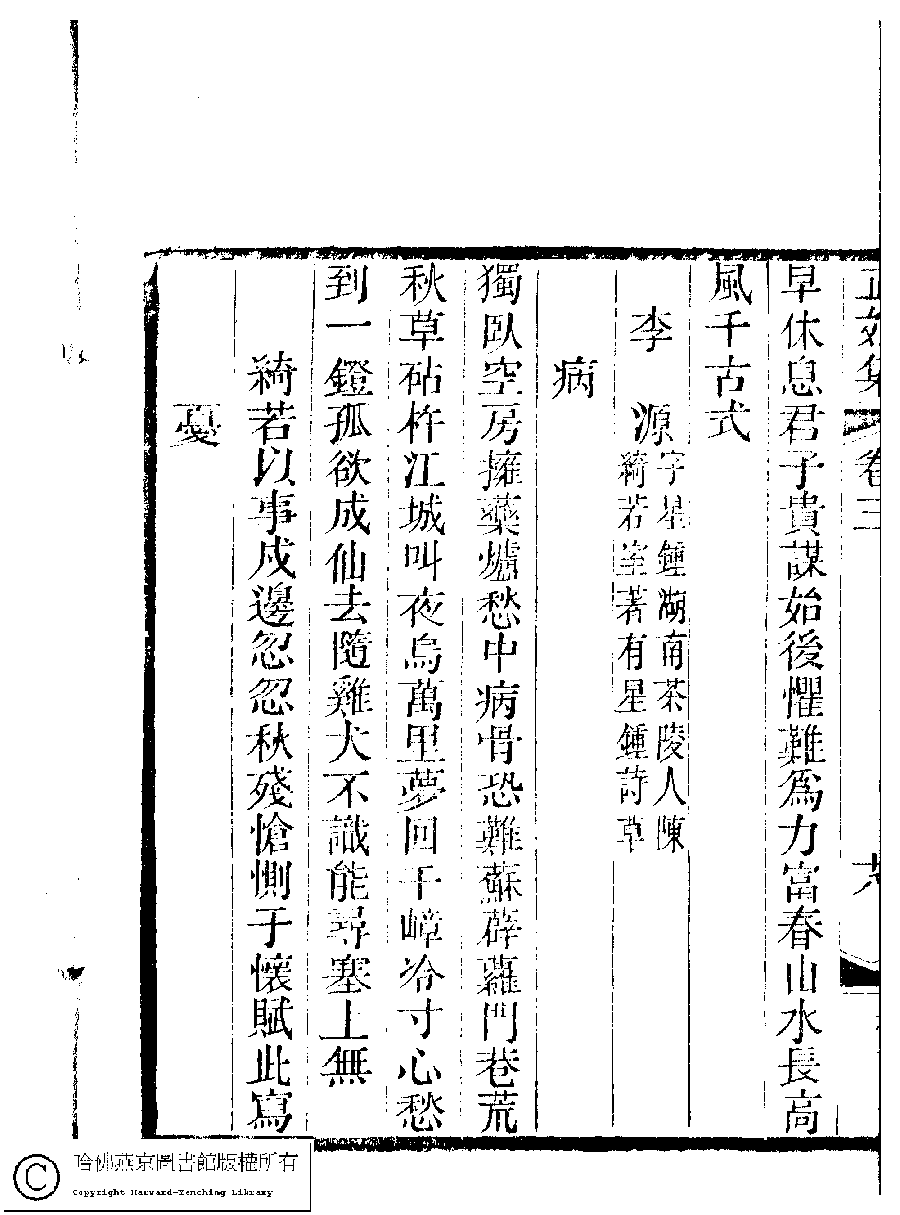 正始集 卷三
早休息君子貴謀始後懼難爲力富春山水長高
風千古式
李源字星鍾湖南茶陵人陳
綺若室著有星鍾詩草
病
獨臥空房擁藥爐愁中病骨恐難蘇薜蘿門巷荒
秋草砧杵江城叫夜烏萬里夢回千嶂冷寸心愁
到一鐙孤欲成仙去隨雞犬不識能尋塞上無
綺若以事戍邊忽忽秋殘愴惻于懷賦此寫
憂
哈佛燕京圖書館版權所有
Copyright Harvard-Yenching Library